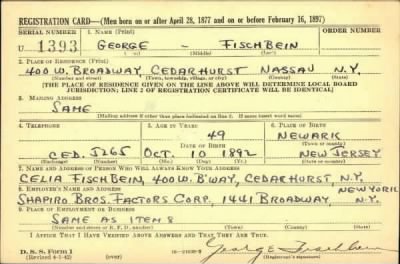 REGISTRATION CARD—(Men born on or after April 28, 1877 and on or before February 16, 1897)
SERIAL NUMBER 1. NAME (Print) ORDER NUMBER
U 1393 GEORGE - FISCHBEIN
(First) (Middle) (Last)
2. PLACE OF RESIDENCE (Print)
400 W. BROADWAY CEDARHURST NASSAU N.Y.
(Number and street) (Town, township, village, or city) (County) (State)
(THE PLACE OF RESIDENCE GIVEN ON THE LINE ABOVE WILL DETERMINE LOCAL BOARD
JURISDICTION; LINE 2 OF REGISTRATION CERTIFICATE WILL BE IDENTICAL)
3. MAILING ADDRESS
SAME
(Mailing address if other than place indicated on line 2. If same insert word same)
4. TELEPHONE 5. AGE IN YEARS 6. PLACE OF BIRTH
49 NEWARK
DATE OF BIRTH (Town or county)
CED. 5265 OCT. 10 1892 NEW JERSEY
(Exchange) (Number) (Mo.) (Day) (Yr.) (State or country)
7. NAME AND ADDRESS OF PERSON WHO WILL ALWAYS KNOW YOUR ADDRESS
CELIA FISCHBEIN, 400 W. B'WAY, CEDARHURST, N.Y.
8. EMPLOYER'S NAME AND ADDRESS NEW YORK
SHAPIRO BROS. FACTORS CORP., 1441 BROADWAY, N.Y.
9. PLACE OF EMPLOYMENT OR BUSINESS
SAME AS ITEM 8
(Number and street or R. F. D. number) (Town) (County) (State)
I AFFIRM THAT I HAVE VERIFIED ABOVE ANSWERS AND THAT THEY ARE TRUE.
D. S. S. Form 1
(Revised 4-1-42) (over) George Fischbein
(Registrant's signature)